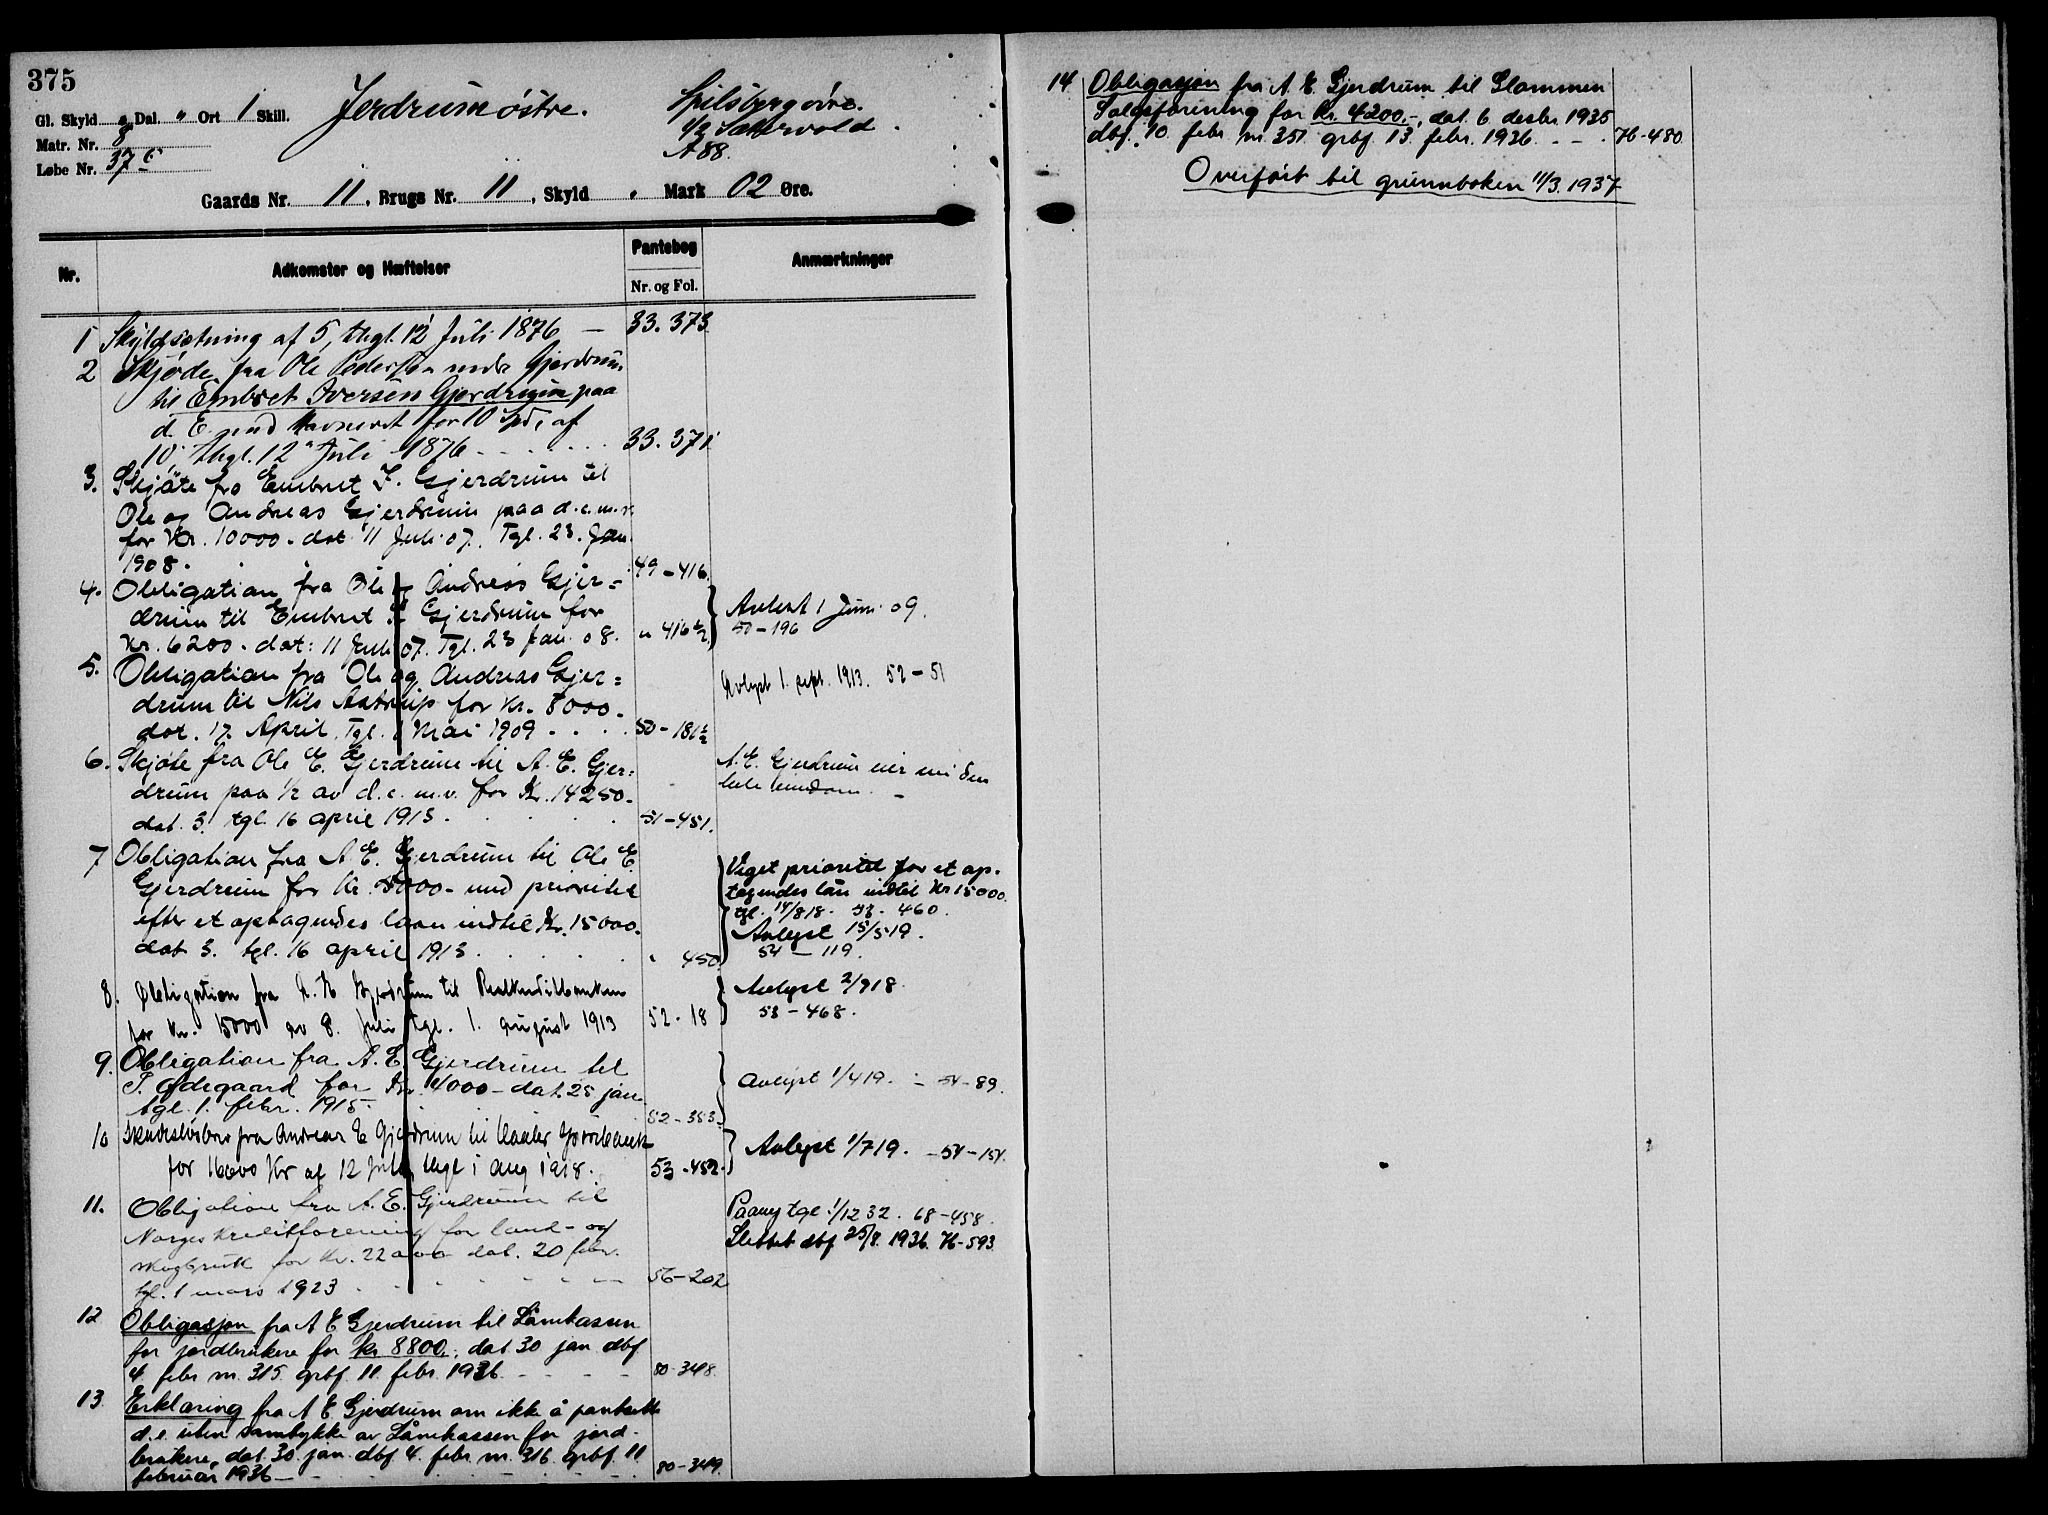 375
Gl. Skyld " Dal. " Ort 1 Skill.
Jerdrum østre.
Spilsberg øvre.
1/2 Sætervold.
A 88.
Matr. Nr. 8
Løbe Nr. 37 c
Gaards Nr. 11, Brugs Nr. 11, Skyld , Mark 02 Øre.
Nr.
Adkomster og Hæftelser
Pantebog
Nr. og Fol.
Anmærkninger
1 Skyldsætning af 5, thgl. 12 Juli 1876 — 33. 373.
2 Skjøde fra Ole Pedersen nedr Gjerdrum
til Embret Iversen Gjerdrum paa
d. E. med Havneret for 10 Spd, af
10, thgl. 12 Juli 1876 - - - - - 33. 371
3. Skjøte fra Embret I. Gjerdrum til
Ole og Andreas Gjerdrum paa d.e.m.v.
for Kr. 10000. dat 11 Juli 07. Tgl. 23. Jan.
1908. 49-416.
4. Obligation fra Ole og Andreas Gjer=
drum til Embret I. Gjerdrum for
Kr. 6200. dat: 11 Juli 07. Tgl. 23 Jan. 08. " 416 1/2
Avlyst 1 Juni 09.
50-196
5. Obligation fra Ole og Andreas Gjer=
drum til Nils Aastrup for Kr. 8000.
dat. 17. April. Tgl. 1 Mai 1909 . . . . 50-181 1/2
Avlyst 1. sept. 1913. 52-51
6. Skjøte fra Ole E. Gjerdrum til A. E. Gjer=
drum paa 1/2 av d.e.m.v. for Kr. 14250.
dat. 3. tgl. 16 april 1913. 51-451.
A. E. Gjerdrum eier nu den
hele eiendom. —
7 Obligation fra A. E. Gjerdrum til Ole E.
Gjerdrum for Kr. 8000- med prioritet
efter et optagendes laan indtil Kr. 15000.
dat 3. tgl. 16 april 1913. . . . . " 450
Veget prioritet for et op-
tagendes lån indtil Kr 15000.
tgl. 14/8 18. 53-460.
Avlyst 15/5 19.
54-119.
8. Obligation fra A. E. Gjerdrum til Realkreditbanken
for Kr. 15000 av 8. Juli tgl. 1. august 1913 52-18
Avlyst 2/9 18.
53-468.
9. Obligation fra A. E. Gjerdrum til
P. Ødegaard for Kr. 4000-dat. 25 jan
tgl. 1. febr. 1915. 52-353.
Avlyst 1/4 19. - 54-89.
10 Skadesløsbrev fra Andreas E Gjerdrum til Vaaler Sparebank
for 16000 Kr af 12 Juli thgl 1 Aug 1918. 53-452.
Avlyst 1/7 19. -54-154.
11. Obligation fra A. E. Gjerdrum til
Norges kreditforening for land- og
skogbruk for kr. 22000 dat. 20 febr.
tgl. 1 mars 1923 56-202
Paany tgl. 1/12 32. 68-458.
Slettet dbf 25/8. 1936. 76-593.
12 Obligasjon fra A E Gjerdrum til Lånekassen
for jordbrukere for kr 8800.-, dat 30 jan dbf
4 febr nr. 315. grbf. 11. febr. 1936. - - - - 80-348.
13 Erklæring fra A E Gjerdrum om ikke å pantsette
d.e. uten samtykke av Lånekassen for jord-
brukere, dat. 30. jan. dbf 4. febr. nr. 316. grbf. 11
februar 1936 — 80-349.
14 Obligasjon fra A. E. Gjerdrum til Glommen
Salgsforening for kr. 4200.-, dat. 6. desbr. 1935
dbf. 10. febr nr. 351. grbf. 13. febr. 1936. - - . 76-480
Overført til grunnboken 11/3. 1937